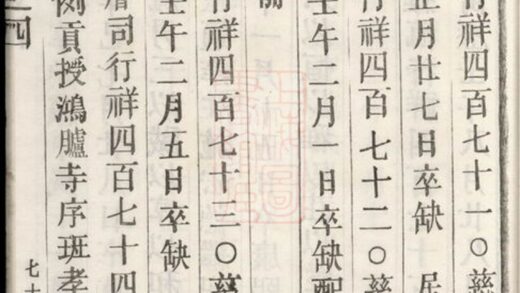 行祥四百七十一○慈
正月廿七日卒缺
行祥四百七十二○慈
壬午二月一日卒缺配
行祥四百七十三○慈
壬午二月五日卒缺
司行祥四百七十四
例貢授鴻臚寺序班孝
之四
七十